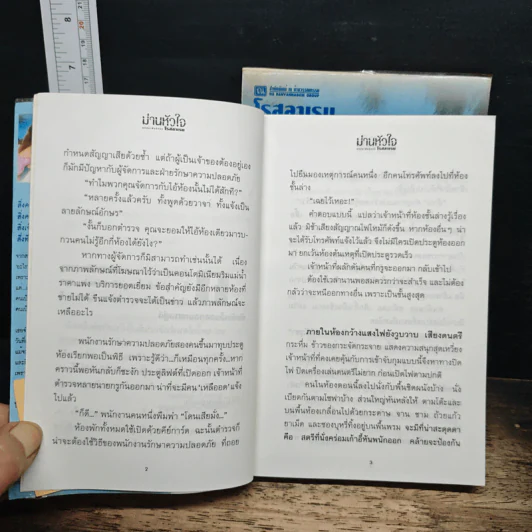 ม่านหัวใจ
กำหนดสัญญาเสียด้วยซ้ำ แต่ถ้าผู้เป็นเจ้าของต้องอยู่เอง
ก็มักมีปัญหากับผู้จัดการและฝ่ายรักษาความปลอดภัย
“ทำไมพวกคุณจัดการกับไอ้ห้องนั้นไม่ได้สักที?”
“หลายครั้งแล้วครับ ทั้งพูดด้วยวาจา ทั้งแจ้งเป็น
ลายลักษณ์อักษร”
“งั้นก็บอกตำรวจ คุณจะยอมให้ไอ้ห้องเดียวมารบ-
กวนคนไม่รู้อีกกี่ห้องได้ยังไง?”
หากทางผู้จัดการก็มิสามารถทำเช่นนั้นได้ เนื่อง
จากภาพลักษณ์ที่โฆษณาไว้ว่าเป็นคอนโดมิเนียมริมแม่น้ำ
ราคาแพง บริการยอดเยี่ยม ข้อสำคัญยังมีอีกหลายห้องที่
ขายไม่ได้ ขืนแจ้งตำรวจจะได้เป็นข่าว แล้วภาพลักษณ์จะ
เหลืออะไร
พนักงานรักษาความปลอดภัยสองคนขึ้นมาทุบประตู
ห้องเรียกพอเป็นพิธี เพราะรู้ดีว่า..ก็เหมือนทุกครั้ง..หาก
คราวนี้พอหันกลับก็ชะงัก ประตูลิฟต์ที่เปิดออก เจ้าหน้าที่
ตำรวจหลายนายกรูกันออกมา น่าที่จะมีคน ‘เหลืออด’ แจ้ง
ไปแล้ว
“ก็ดี...” พนักงานคนหนึ่งพึมพำ “โดนเสียมั่ง...”
ห้องพักทั้งหมดใช้เปิดด้วยคีย์การ์ด ฉะนั้นตำรวจก็
น่าจะต้องใช้วิธีของพนักงานรักษาความปลอดภัย ที่ถอย
2
ม่านหัวใจ
ไปยืนมองเหตุการณ์คนหนึ่ง อีกคนโทรศัพท์ลงไปที่ห้อง
ชั้นล่าง
“เฉยไว้เหอะ!”
คำตอบแบบนี้ แปลว่าเจ้าหน้าที่ห้องชั้นล่างรู้เรื่อง
แล้ว มิช้าเสียงสัญญาณไฟไหม้ก็ดังขึ้น หากห้องอื่นๆ น่า
จะได้รับโทรศัพท์แจ้งไว้แล้ว จึงไม่มีใครเปิดประตูห้องออก
มา ยกเว้นห้องต้นเหตุที่เปิดประตูรวดเร็ว
เจ้าหน้าที่ผลักดันคนที่กรูจะออกมา กลับเข้าไป
ต้องใช้เวลานานพอสมควรกว่าจะสำเร็จ และไม่ต้อง
กลัวว่าจะหนีออกทางอื่น เพราะเป็นชั้นสูงสุด
ภายในห้องกว้างแสงไฟยังวูบวาบ เสียงดนตรี
กระหึ่ม ข้าวของกระจัดกระจาย แสดงความสนุกสุดเหวี่ยง
เจ้าหน้าที่ที่คงเคยคุ้นกับการเข้าจับกุมแบบนี้จึงหาทางปิด
ไฟ ปิดเครื่องเล่นดนตรีไม่ยาก ก่อนเปิดไฟตามปกติ
คนในห้องตอนนี้ลงไปนั่งกับพื้นชิดผนังบ้าง นั่ง
เบียดกันตามโซฟาบ้าง ส่วนใหญ่หันหลังให้ ตามโต๊ะและ
บนพื้นห้องเกลื่อนไปด้วยกระดาษ จาน ชาม ถ้วยแก้ว
ยาเม็ด และซองบุหรี่ทิ้งอยู่บนพื้นพรม จะมีที่น่าสะดุดตา
คือ สตรีที่นั่งคร่อมเก้าอี้หันพนักออก คล้ายจะป้องกัน
3